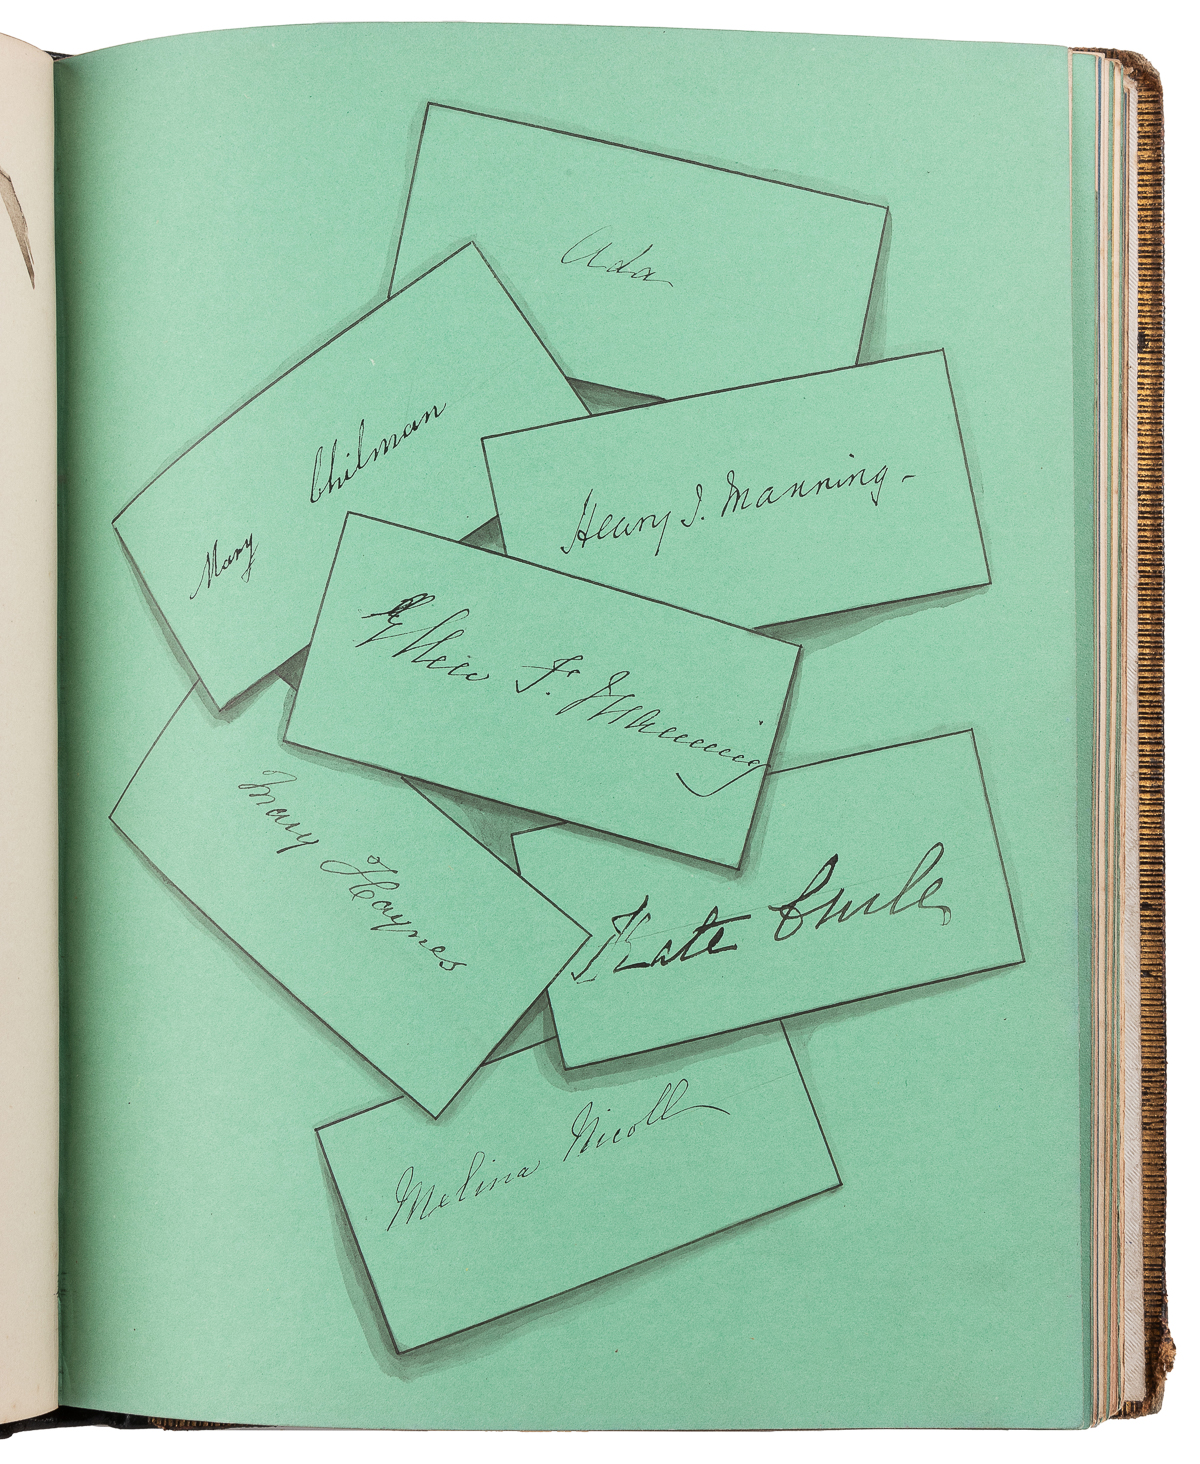 Ada
Mary Chilman
Henry J. Manning -
F. Manning
Mary Haynes
Kate
Melina Nicoll